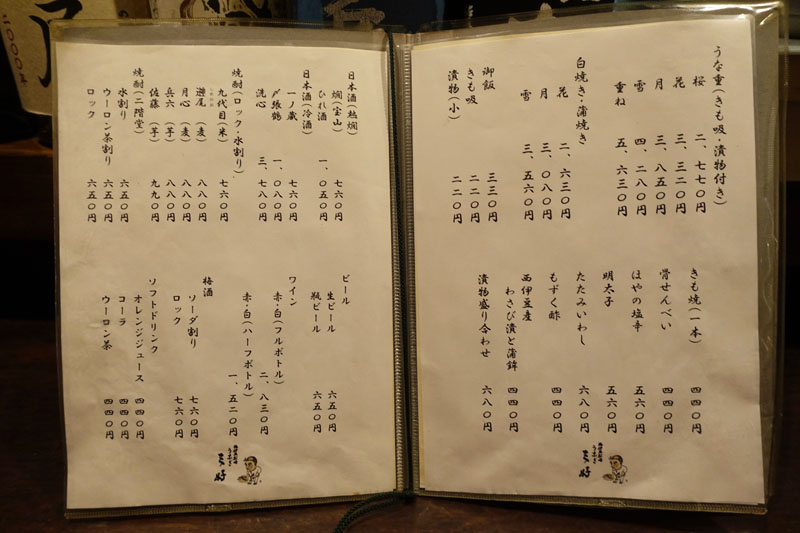 うな重(きも吸・漬物付き)
桜 二、七七〇円
花 三、三二〇円
月 三、八五〇円
雪 四、二八〇円
重ね 五、六三〇円
白焼き・蒲焼き
花 二、六三〇円
月 三、〇八〇円
雪 三、五六〇円
御飯 三三〇円
きも吸 二二〇円
漬物(小) 二二〇円
きも焼(一本) 四四〇円
骨せんべい 四四〇円
ほやの塩辛 五六〇円
明太子 五六〇円
たたみいわし 六八〇円
もずく酢 四四〇円
西伊豆産
わさび漬と蒲鉾 四四〇円
漬物盛り合わせ 六八〇円
日本酒(熱燗)
燗(宝山) 七六〇円
ひれ酒 一、〇五〇円
日本酒(冷酒)
一ノ蔵 七六〇円
〆張鶴 一、〇八〇円
洗心 三、七八〇円
焼酎(ロック・水割り)
九代目(米) 七六〇円
遊尾(麦) 八八〇円
月心(麦) 八八〇円
兵六(芋) 八八〇円
佐藤(芋) 九九〇円
焼酎(二階堂)
水割り 六五〇円
ウーロン茶割り 六五〇円
ロック 六五〇円
ビール
生ビール 六五〇円
瓶ビール 六五〇円
ワイン
赤・白(フルボトル) 二、八三〇円
赤・白(ハーフボトル) 一、五二〇円
梅酒
ソーダ割り 七六〇円
ロック 七六〇円
ソフトドリンク
オレンジジュース 四四〇円
コーラ 四四〇円
ウーロン茶 四四〇円